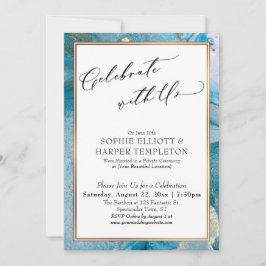 Celebrate
with Us
On June 10th
SOPHIE ELLIOTT &
HARPER TEMPLETON
Were Married in a Private Ceremony
at {Your Beautiful Location}
Please Join Us for a Celebration
Saturday, August 22, 20xx | 7:30pm
The Parthen at 123 Fantastic St.
Spectacular Town, ST
RSVP Online by August 1 at
yourweddingwebsite.com